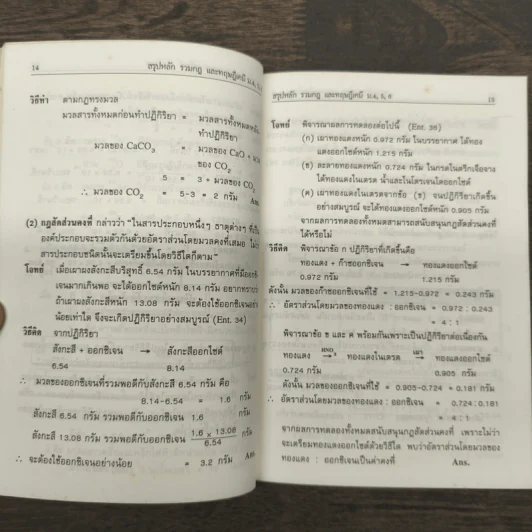 14 สรุปหลัก รวมกฎ และทฤษฎีเคมี ม.4, 5, 6
วิธีทำ ตามกฎทรงมวล
มวลสารทั้งหมดก่อนทำปฏิกิริยา = มวลสารทั้งหมดหลัง
ทำปฏิกิริยา
มวลของ CaCO3 = มวลของ CaO + มวล
ของ CO2
5 = 3 + มวลของ CO2
∴ มวลของ CO2 = 5-3 = 2 กรัม Ans.
(2) กฎสัดส่วนคงที่ กล่าวว่า "ในสารประกอบหนึ่งๆ ธาตุต่างๆ ที่เป็น
องค์ประกอบจะรวมตัวกันด้วยอัตราส่วนโดยมวลคงที่เสมอ ไม่ว่า
สารประกอบชนิดนั้นจะเตรียมขึ้นโดยวิธีใดก็ตาม"
โจทย์ เมื่อเผาผงสังกะสีบริสุทธิ์ 6.54 กรัม ในบรรยากาศที่มีออกซิ
เจนมากเกินพอ จะได้ออกไซด์หนัก 8.14 กรัม อยากทราบว่า
ถ้าเผาผงสังกะสีหนัก 13.08 กรัม จะต้องใช้ออกซิเจนอย่าง
น้อยเท่าใด จึงจะเกิดปฏิกิริยาอย่างสมบูรณ์ (Ent. 34)
วิธีคิด จากปฏิกิริยา
สังกะสี + ออกซิเจน → สังกะสีออกไซด์
6.54 8.14
∴ มวลของออกซิเจนที่รวมพอดีกับสังกะสี 6.54 กรัม คือ
8.14-6.54 = 1.6 กรัม
สังกะสี 6.54 กรัม รวมพอดีกับออกซิเจน 1.6 กรัม
สังกะสี 13.08 กรัม รวมพอดีกับออกซิเจน 1.6 x 13.08 / 6.54 กรัม
∴ จะต้องใช้ออกซิเจนอย่างน้อย = 3.2 กรัม Ans.
สรุปหลัก รวมกฎ และทฤษฎีเคมี ม.4, 5, 6 15
โจทย์ พิจารณาผลการทดลองต่อไปนี้ (Ent. 36)
(ก) เผาทองแดงหนัก 0.972 กรัม ในบรรยากาศ ได้ทอง
แดงออกไซด์หนัก 1.215 กรัม
(ข) ละลายทองแดงหนัก 0.724 กรัม ในกรดไนตริกเจือจาง
ได้ทองแดงไนเตรต น้ำและไนโตรเจนไดออกไซด์
(ค) เผาทองแดงไนเตรตจากข้อ (ข) จนปฏิกิริยาเกิดขึ้น
อย่างสมบูรณ์ จะได้ทองแดงออกไซด์หนัก 0.905 กรัม
จากผลการทดลองทั้งหมดสามารถสนับสนุนกฎสัดส่วนคงที่
ได้หรือไม่
วิธีคิด พิจารณาข้อ ก ปฏิกิริยาที่เกิดขึ้นคือ
ทองแดง + ก๊าซออกซิเจน → ทองแดงออกไซด์
0.972 กรัม 1.215 กรัม
ดังนั้น มวลของก๊าซออกซิเจนที่ใช้ = 1.215-0.972 = 0.243 กรัม
∴ อัตราส่วนโดยมวลของทองแดง : ออกซิเจน = 0.972 : 0.243
= 4 : 1
พิจารณาข้อ ข และ ค พร้อมกันเพราะเป็นปฏิกิริยาต่อเนื่องกัน
ทองแดง HNO3 → ทองแดงไนเตรต เผา → ทองแดงออกไซด์
0.724 กรัม 0.905 กรัม
ดังนั้น มวลของออกซิเจนที่ใช้ = 0.905-0.724 = 0.181 กรัม
∴ อัตราส่วนโดยมวลของทองแดง : ออกซิเจน = 0.724 : 0.181
= 4 : 1
จากผลการทดลองทั้งหมดสนับสนุนกฎสัดส่วนคงที่ เพราะไม่ว่า
จะเตรียมทองแดงออกไซด์ด้วยวิธีใด พบว่าอัตราส่วนโดยมวลของ
ทองแดง : ออกซิเจนเป็นค่าคงที่ Ans.